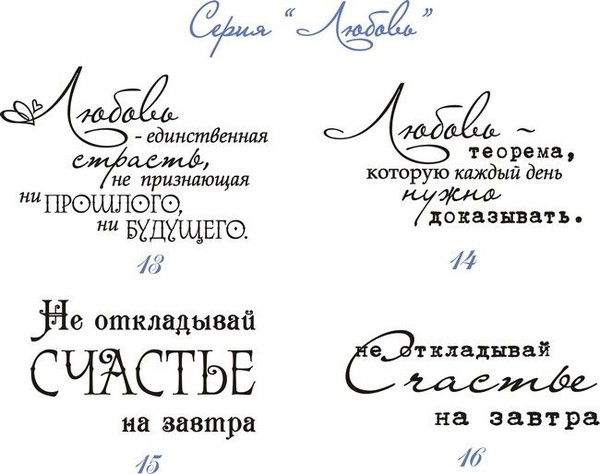 Серия “Любовь”
Любовь
- единственная
страсть,
не признающая
ни ПРОШЛОГО,
ни БУДУЩЕГО.
13
Любовь ~
теорема,
которую каждый день
нужно
доказывать.
14
Не откладывай
СЧАСТЬЕ
на завтра
15
не откладывай
Счастье
на завтра
16